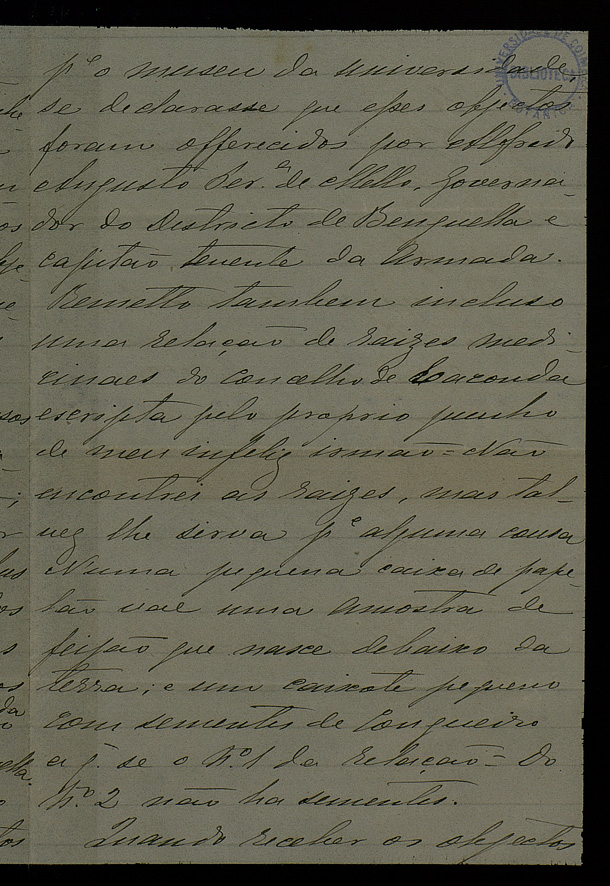 pª o museu da universidade,
se declarasse que esses objectos
foram offerecidos por Alfredo
Augusto Per.ª de Mello, Governa-
dor do Districto de Benguella e
capitão tenente da Armada.
Remetto tambem incluso
uma relação de raizes medi-
cinaes do concelho de Caconda
escripta pelo proprio punho
de meu infeliz irmão = Não
encontrei as raizes, mas tal-
vez lhe sirva pª alguma cousa
Numa pequena caixa de pape-
lão vae uma amostra de
feijão que nasce debaixo da
terra; e um caixote pequeno
com sementes de Congueiro
a q. se o nº. 1 da relação = Do
Nº. 2 não ha sementes.
Quando receber os objectos
UNIVERSIDADE DE COIMBRA
BIBLIOTECA
BOTANICA